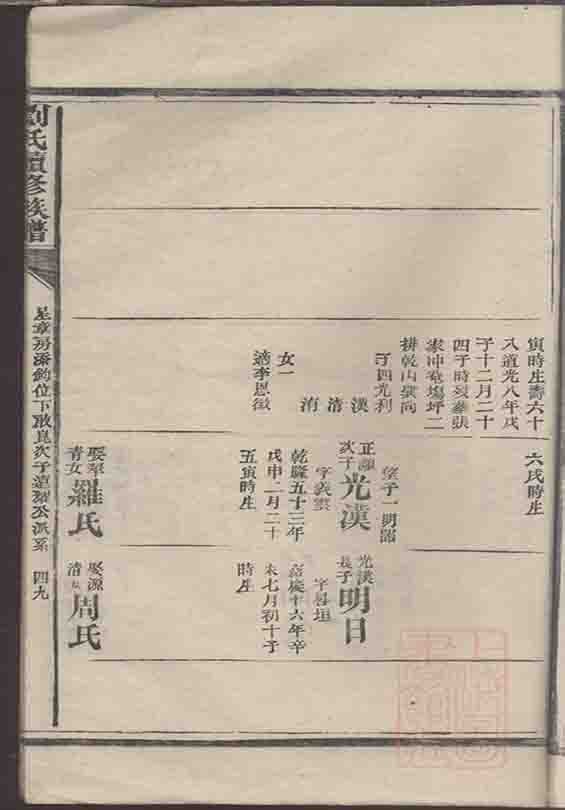 寅時生壽六十
八道光八年戊
子十二月二十
四子時歿葬張
家冲奄塲坪二
排乾山巽向
子四光利
漢
清
洧
女一
適李恩徵
六戌時生
繼子一明昭
正
次子光漢
字義雲
乾隆五十三年
戊申二月二十
五寅時生
娶
青女羅氏
光漢
長子明日
字昌垣
嘉慶十六年辛
未七月初十子
時生
娶源
清女周氏
劉氏續修族譜
星章房添鈞位下啟崑次子
公派系 四九